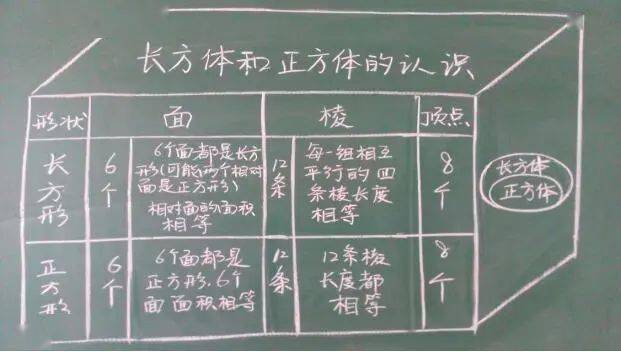 长方体和正方体的认识
形状
面
棱
顶点
长
方
形
6
个
6个面都是长方
形(可能两个相对
面是正方形)
相对面的面积
相等
12
条
每一组相互
平行的四
条棱长度
相等
8
个
正
方
形
6
个
6个面都是
正方形.6个
面面积相等
12
条
12条棱
长度都
相等
8
个
长方体
正方体